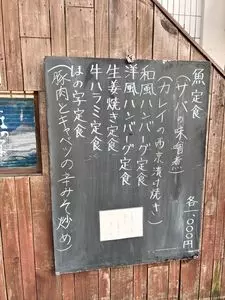 魚定食 各一、〇〇〇円
(サバの味噌煮)
(カレイの西京漬け焼き)
和風ハンバーグ定食
洋風ハンバーグ定食
生姜焼き定食
牛ハラミ定食
はの字定食
(豚肉とキャベツの辛みそ炒め)